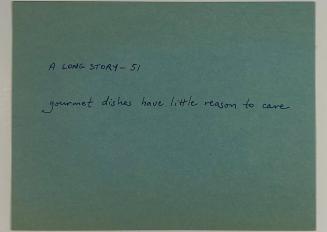 A LONG STORY – 51
gourmet dishes have little reason to care